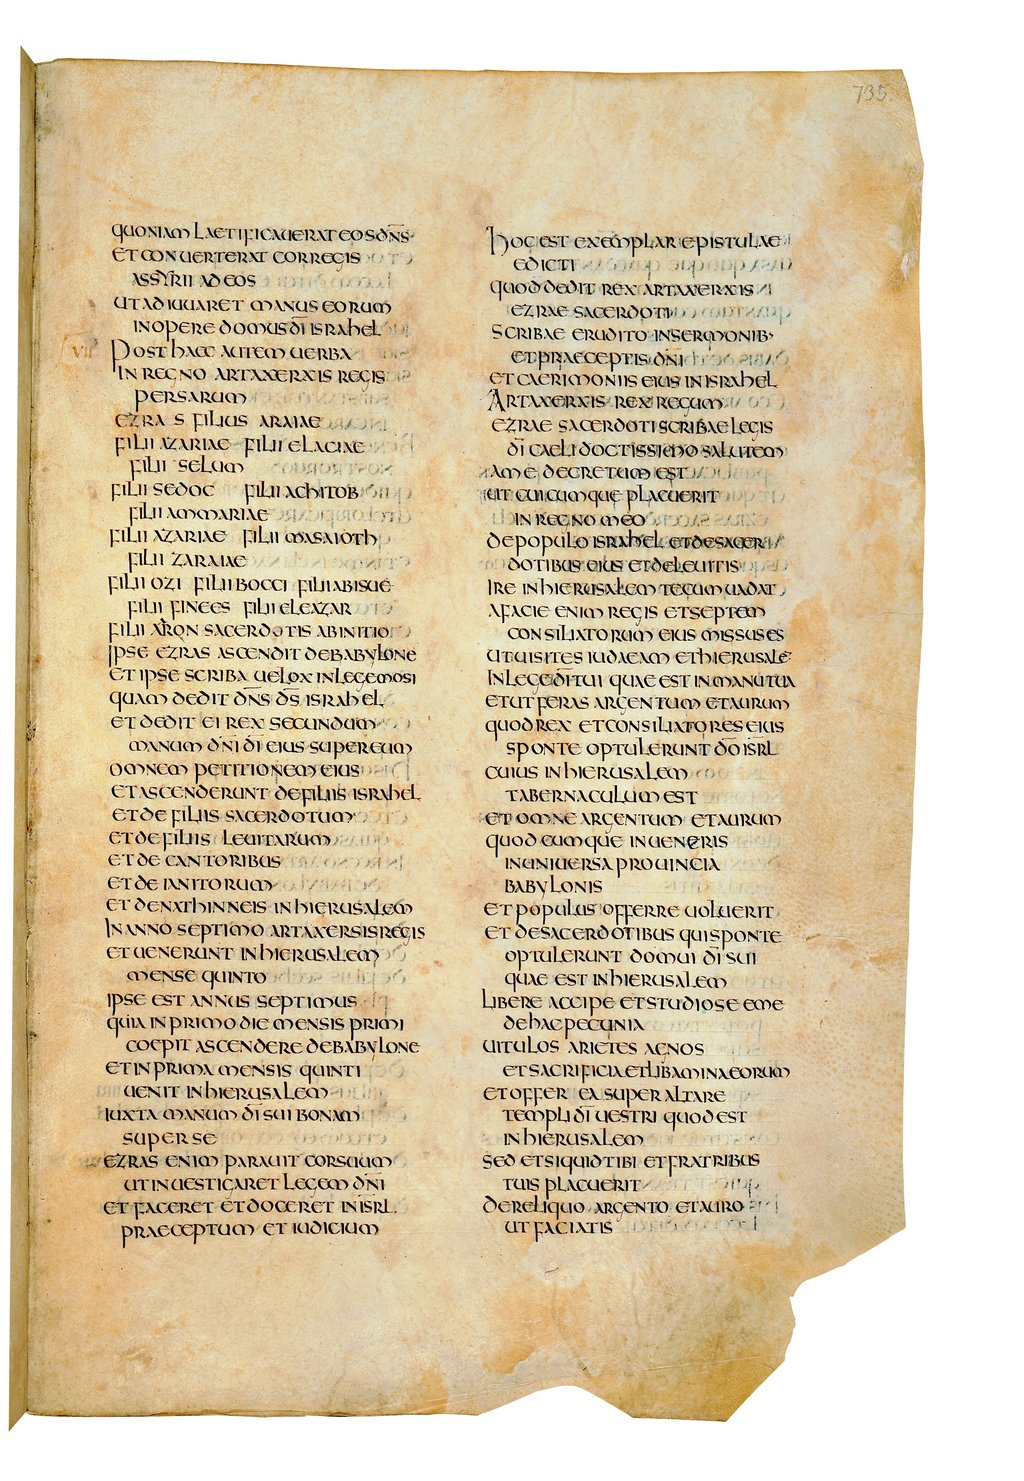 735.
quoniam laetificauerat eos dn̄s
et conuerterat cor regis
assyrii ad eos
ut adiuuaret manus eorum
in opere domus dī israhel
VII
Post haec autem uerba
in regno artaxerxis regis
persarum
ezras filius araiae
filii azariae filii elaciae
filii selum
filii sedoc filii achitob
filii ammariae
filii azariae filii masaioth
filii zaraiae
filii ozi filii bocci filii abisue
filii finees filii eleazar
filii aron sacerdotis ab initio
Ipse ezras ascendit de babylone
et ipse scriba uelox in lege mosi
quam dedit dn̄s dī israhel
et dedit ei rex secundum
manum dn̄i dī eius super eum
omnem petitionem eius
et ascenderunt de filiis israhel
et de filiis sacerdotum
et de filiis leuitarum
et de cantoribus
et de ianitorum
et de nathinneis in hierusalem
In anno septimo artaxersis regis
et uenerunt in hierusalem
mense quinto
ipse est annus septimus
quia in primo die mensis primi
coepit ascendere de babylone
et in prima mensis quinti
uenit in hierusalem
iuxta manum dī sui bonam
super se
ezras enim parauit cor suum
ut inuestigaret legem dn̄i
et faceret et doceret in isr̄l
praeceptum et iudicium
Hoc est exemplar epistulae
edicti
quod dedit rex artaxerxis
ezrae sacerdoti
scribae erudito in sermonib·
et praeceptis dn̄i
et caerimoniis eius in israhel
Artaxerxis rex regum
ezrae sacerdoti scribae legis
dī caeli doctissimo salutem
a me decretum est
ut cuicumque placuerit
in regno meo
de populo israhel et de sacer
dotibus eius et de leuitis
ire in hierusalem tecum uadat
a facie enim regis et septem
consiliatorum eius missus es
ut uisites iudaeam et hierusalē
In lege dī tui quae est in manu tua
et ut feras argentum et aurum
quod rex et consiliatores eius
sponte optulerunt dō isr̄l
cuius in hierusalem
tabernaculum est
et omne argentum et aurum
quodcumque inueneris
in uniuersa prouincia
babylonis
et populus offerre uoluerit
et de sacerdotibus qui sponte
optulerunt domui dī sui
quae est in hierusalem
libere accipe et studiose eme
de hac pecunia
uitulos arietes agnos
et sacrificia et libamina eorum
et offer ea super altare
templi dī uestri quod est
in hierusalem
sed et si quid tibi et fratribus
tuis placuerit
de reliquo argento et auro
ut faciatis